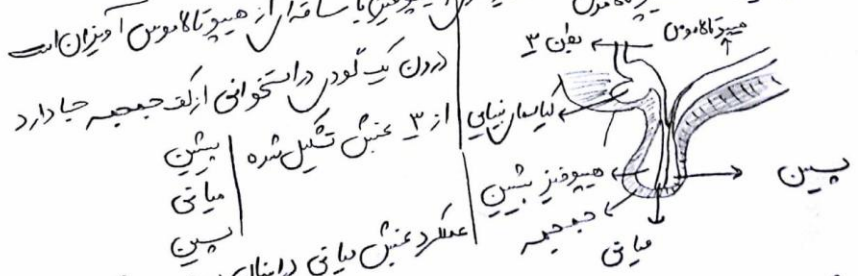 هیپوفیز با ساقه‌ای از هیپوتالاموس آویزان است
درون یک گودی در استخوانی از کف جمجمه جا دارد
از ۳ بخش تشکیل شده
پیشین
میانی
پسین
عملکرد بخش میانی در انسان
هیپوتالاموس
بطن ۳
کیاسمای بینایی
هیپوفیز پیشین
جمجمه
میانی
پسین